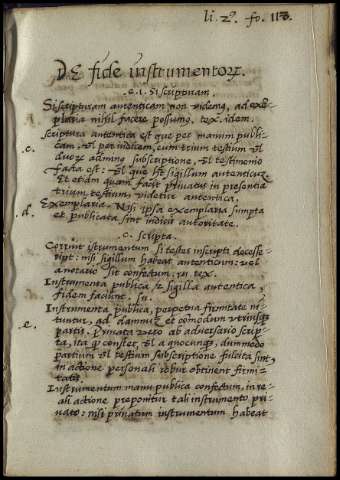 li. 2º. fo. 113.
DE fide instrumentorꝝ.
.c. 1. Si scripturam.
Si scripturam autenticam non videmꝰ, ad exẽplaria
nihil facere possumꝰ, tex. idem.
.c. Scriptura autentica est que per manum publicam.
vel per iudicem, cum trium testium vel
duorꝝ ad minꝰ subscriptione, vel testimonio
facta est: vel que hẽt sigillum autenticũ.
Et etiam quam facit priuatus in presentia
trium testium, videtur autentica.
.d. Exemplaria. Nisi ipsa exemplaria sumpta
et publicata sint iudicis autoritate.
c. scripta.
instrumentum si testes inscripti decesserint:
nisi sigillum habeat autenticum: vel
a notario sit confectum, in tex.
Instrumenta publica sigilla autentica,
fidem faciunt.
.e. Instrumenta publica, perpetua firmitate nituntur,
ad damnũ et cõmodum vtriusqꝫ
partis, Priuata vero ab aduersario scripta,
ita qꝫ constet, vel a quocunqꝫ, dummodo
partium vel testium subscriptione fulcita sint,
in actione personali robur obtinent firmitatis.
Instrumentum manu publica confectum, in reali
actione preponitur tali instrumento priuato:
nisi priuatum instrumentum habeat